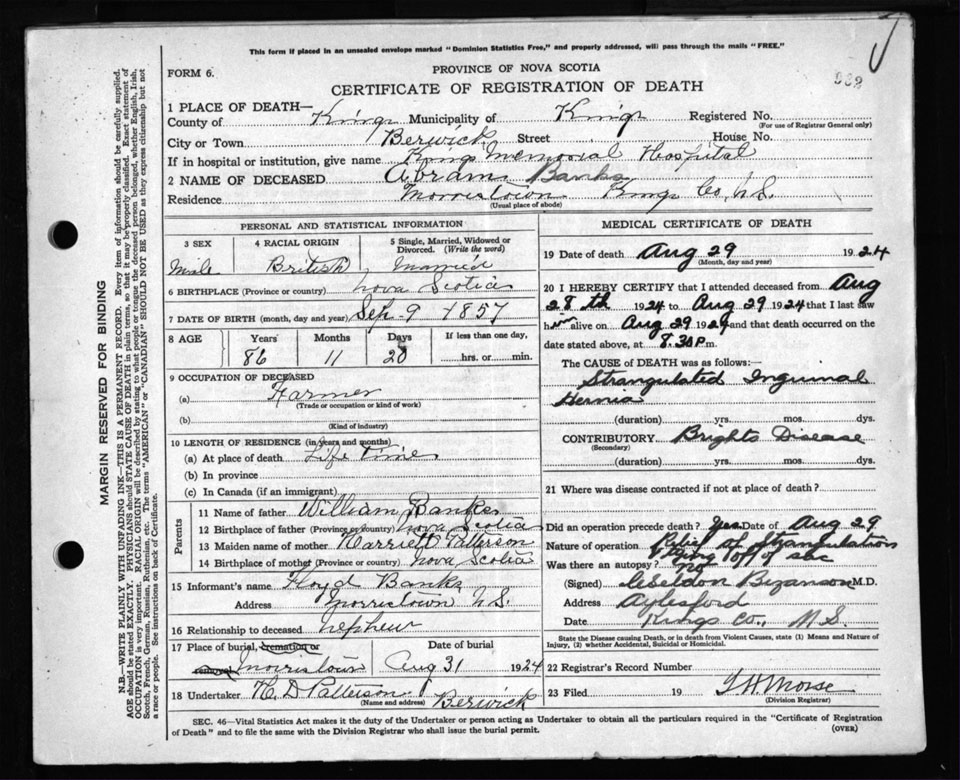 This form if placed in an unsealed envelope marked "Dominion Statistics Free," and properly addressed, will pass through the mails "FREE."
FORM 6.
PROVINCE OF NOVA SCOTIA
CERTIFICATE OF REGISTRATION OF DEATH
1 PLACE OF DEATH—
County of Kings Municipality of Kings Registered No.
(For use of Registrar General only)
City or Town Berwick Street House No.
If in hospital or institution, give name Kings Memorial Hospital
2 NAME OF DECEASED Abram Banks
Residence Morristown Kings Co, N.S.
(Usual place of abode)
PERSONAL AND STATISTICAL INFORMATION
3 SEX 4 RACIAL ORIGIN 5 Single, Married, Widowed or Divorced. (Write the word)
Male British Married
6 BIRTHPLACE (Province or country) Nova Scotia
7 DATE OF BIRTH (month, day and year) Sep 9 1857
8 AGE Years Months Days If less than one day,
86 11 20 hrs. or min.
9 OCCUPATION OF DECEASED
(a) Farmer
(Trade or occupation or kind of work)
(b)
(Kind of industry)
10 LENGTH OF RESIDENCE (in years and months)
(a) At place of death Life time
(b) In province
(c) In Canada (if an immigrant)
Parents
11 Name of father William Banks
12 Birthplace of father (Province or country) Nova Scotia
13 Maiden name of mother Harriett Patterson
14 Birthplace of mother (Province or country) Nova Scotia
15 Informant's name Floyd Banks
Address Morristown N.S.
16 Relationship to deceased nephew
17 Place of burial, cremation or Date of burial
removal Morristown Aug 31 1924
18 Undertaker H. D Patterson Berwick
(Name and address)
MEDICAL CERTIFICATE OF DEATH
19 Date of death Aug 29 1924
(Month, day and year)
20 I HEREBY CERTIFY that I attended deceased from Aug
28th 1924 to Aug 29 1924 that I last saw
him alive on Aug 29 1924 and that death occurred on the
date stated above, at 8.30 P.m.
The CAUSE of DEATH was as follows:
Strangulated Inguinal
Hernia
(duration) yrs. mos. dys.
CONTRIBUTORY Brights Disease
(Secondary)
(duration) yrs. mos. dys.
21 Where was disease contracted if not at place of death?
Did an operation precede death? Yes Date of Aug 29
Nature of operation Relief of Strangulation
tying off of sac
Was there an autopsy? no
(Signed) Bezanson M.D.
Address Aylesford
Date Kings Co., N.S.
State the Disease causing Death, or in death from Violent Causes, state (1) Means and Nature of
Injury, (2) whether Accidental, Suicidal or Homicidal.
22 Registrar's Record Number
23 Filed 19 Morse
(Division Registrar)
SEC. 46—Vital Statistics Act makes it the duty of the Undertaker or person acting as Undertaker to obtain all the particulars required in the "Certificate of Registration
of Death" and to file the same with the Division Registrar who shall issue the burial permit.
(OVER)
MARGIN RESERVED FOR BINDING
N.B.—WRITE PLAINLY WITH UNFADING INK—THIS IS A PERMANENT RECORD. Every item of information should be carefully supplied.
AGE should be stated EXACTLY. PHYSICIANS should STATE CAUSE OF DEATH in plain terms, so that it may be properly classified. Exact statement of
OCCUPATION is very important. RACIAL ORIGIN will be described by stating to what people or tongue the deceased person belonged, whether English, Irish,
Scotch, French, German, Russian, Ruthenian, etc. The terms "AMERICAN" or "CANADIAN" SHOULD NOT BE USED as they express citizenship but not
a race or people. See instructions on back of Certificate.